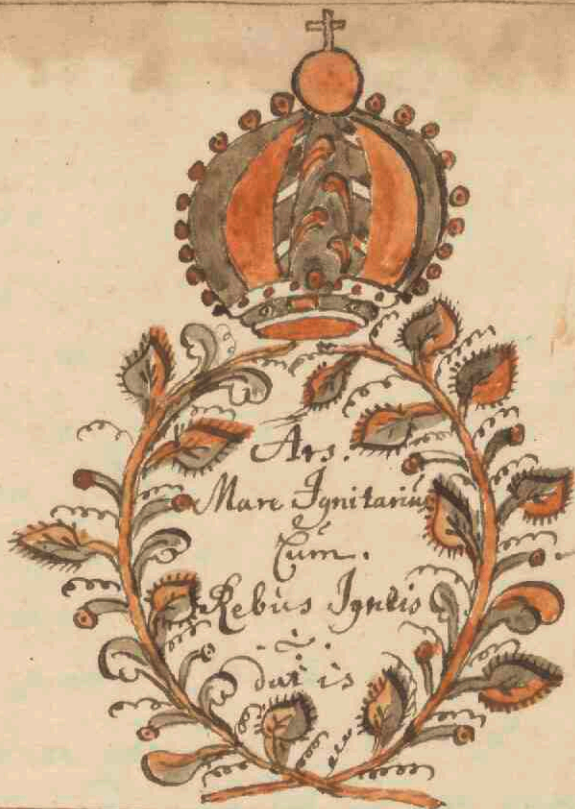 Ars.
Mare Ignitariũ
Cum.
Rebus Igntis